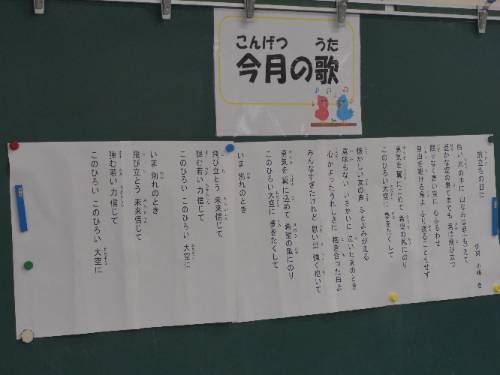 こんげつ うた
今月の歌
旅立ちの日に
白い光の中に 山なみは萌えて
遥かな空の果てまでも 君は飛び立つ
限りなく青い空に 心ふるわせ
自由を駆ける鳥よ ふり返ることもせず
勇気を翼にこめて 希望の風にのり
このひろい大空に 夢をたくして
懐かしい友の声 ふとよみがえる
意味もない いさかいに 泣いたあのとき
心かよったうれしさに 抱き合った日よ
みんなすぎたけれど 思い出 強く抱いて
勇気を翼に込めて 希望の風にのり
このひろい大空に 夢をたくして
いま 別れのとき
飛び立とう 未来信じて
弾む若い 力 信じて
このひろい このひろい 大空に
いま 別れのとき
飛び立とう 未来信じて
弾む若い 力 信じて
このひろい このひろい 大空に